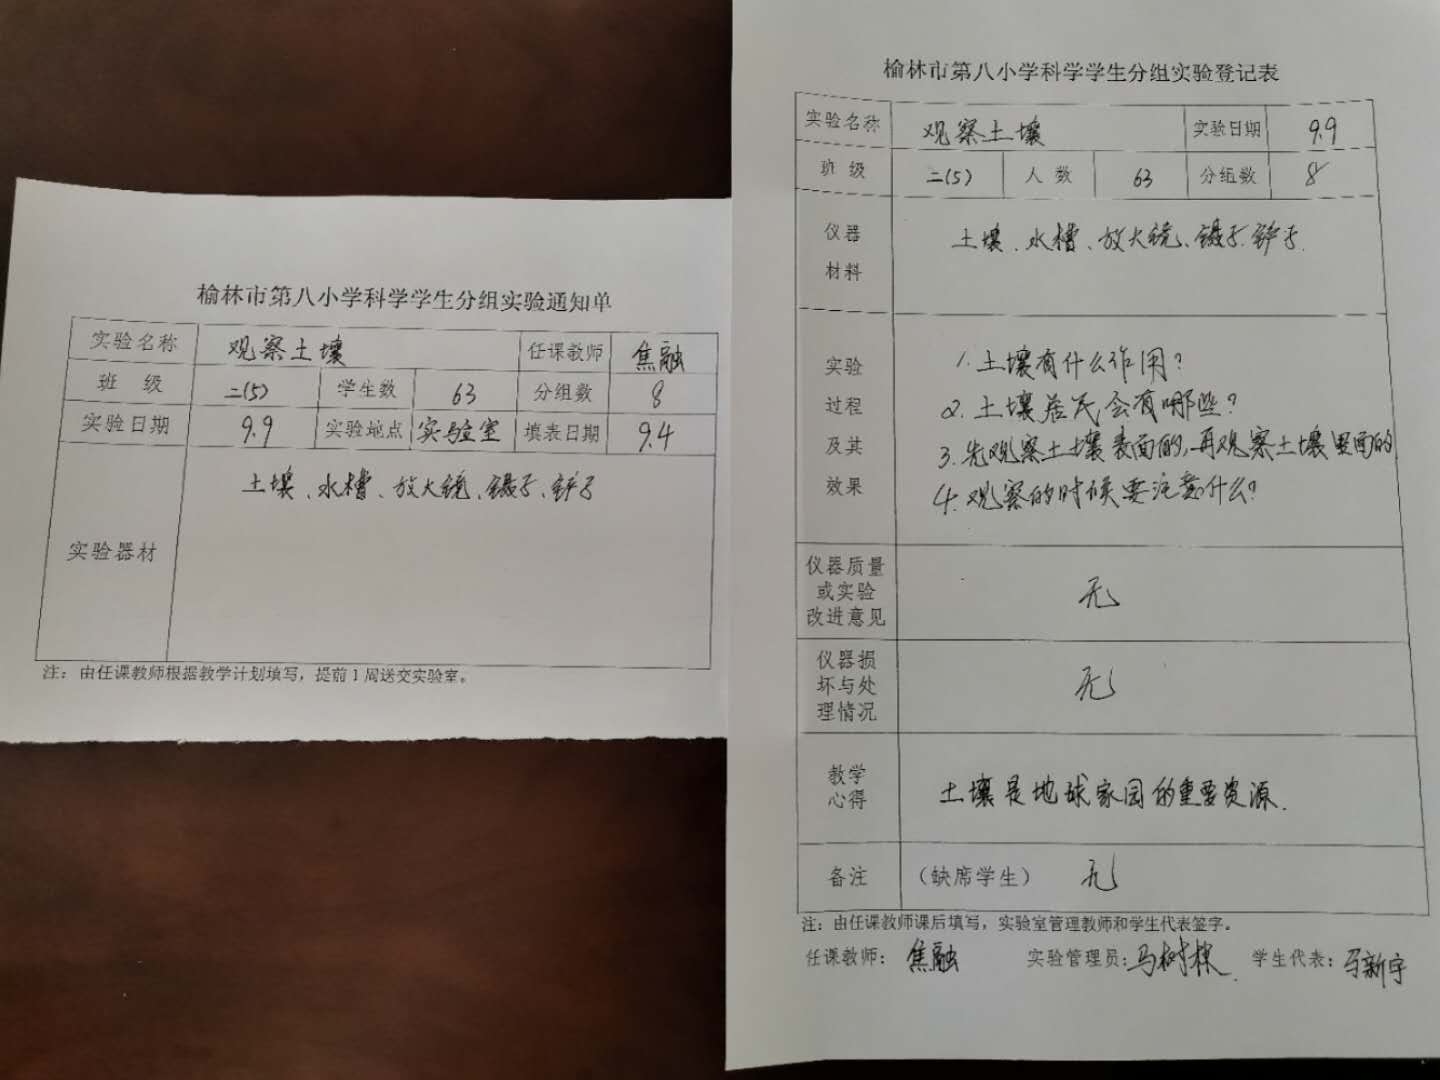 榆林市第八小学科学学生分组实验通知单
实验名称 观察土壤 任课教师 焦融
班 级 二(5) 学生数 63 分组数 8
实验日期 9.9 实验地点 实验室 填表日期 9.4
实验器材 土壤、水槽、放大镜、镊子、铲子
注：由任课教师根据教学计划填写，提前1周送交实验室。
榆林市第八小学科学学生分组实验登记表
实验名称 观察土壤 实验日期 9.9
班 级 二(5) 人 数 63 分组数 8
仪器
材料
土壤、水槽、放大镜、镊子、铲子.
实验
过程
及其
效果
1.土壤有什么作用?
2.土壤居民会有哪些?
3.先观察土土壤表面的,再观察土壤里面的
4.观察的时候要注意什么?
仪器质量
或实验
改进意见
无
仪器损
坏与处
理情况
无
教学
心得
土壤是地球家园的重要资源.
备注 （缺席学生） 无
注：由任课教师课后填写，实验室管理教师和学生代表签字。
任课教师：焦融 实验管理员：马树栋 学生代表：马新宇